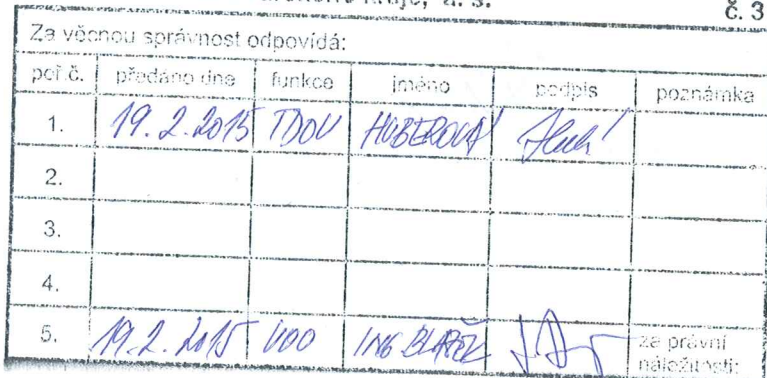 kraje, a. s. č. 3
Za věcnou správnost odpovídá:
poř.č. předáno dne funkce jméno podpis poznámka
1. 19. 2. 2015 TDOU HUBEROVÁ
2.
3.
4.
5. 19. 2. 2015 VOO ING BLAŽEK za právní
náležitosti: